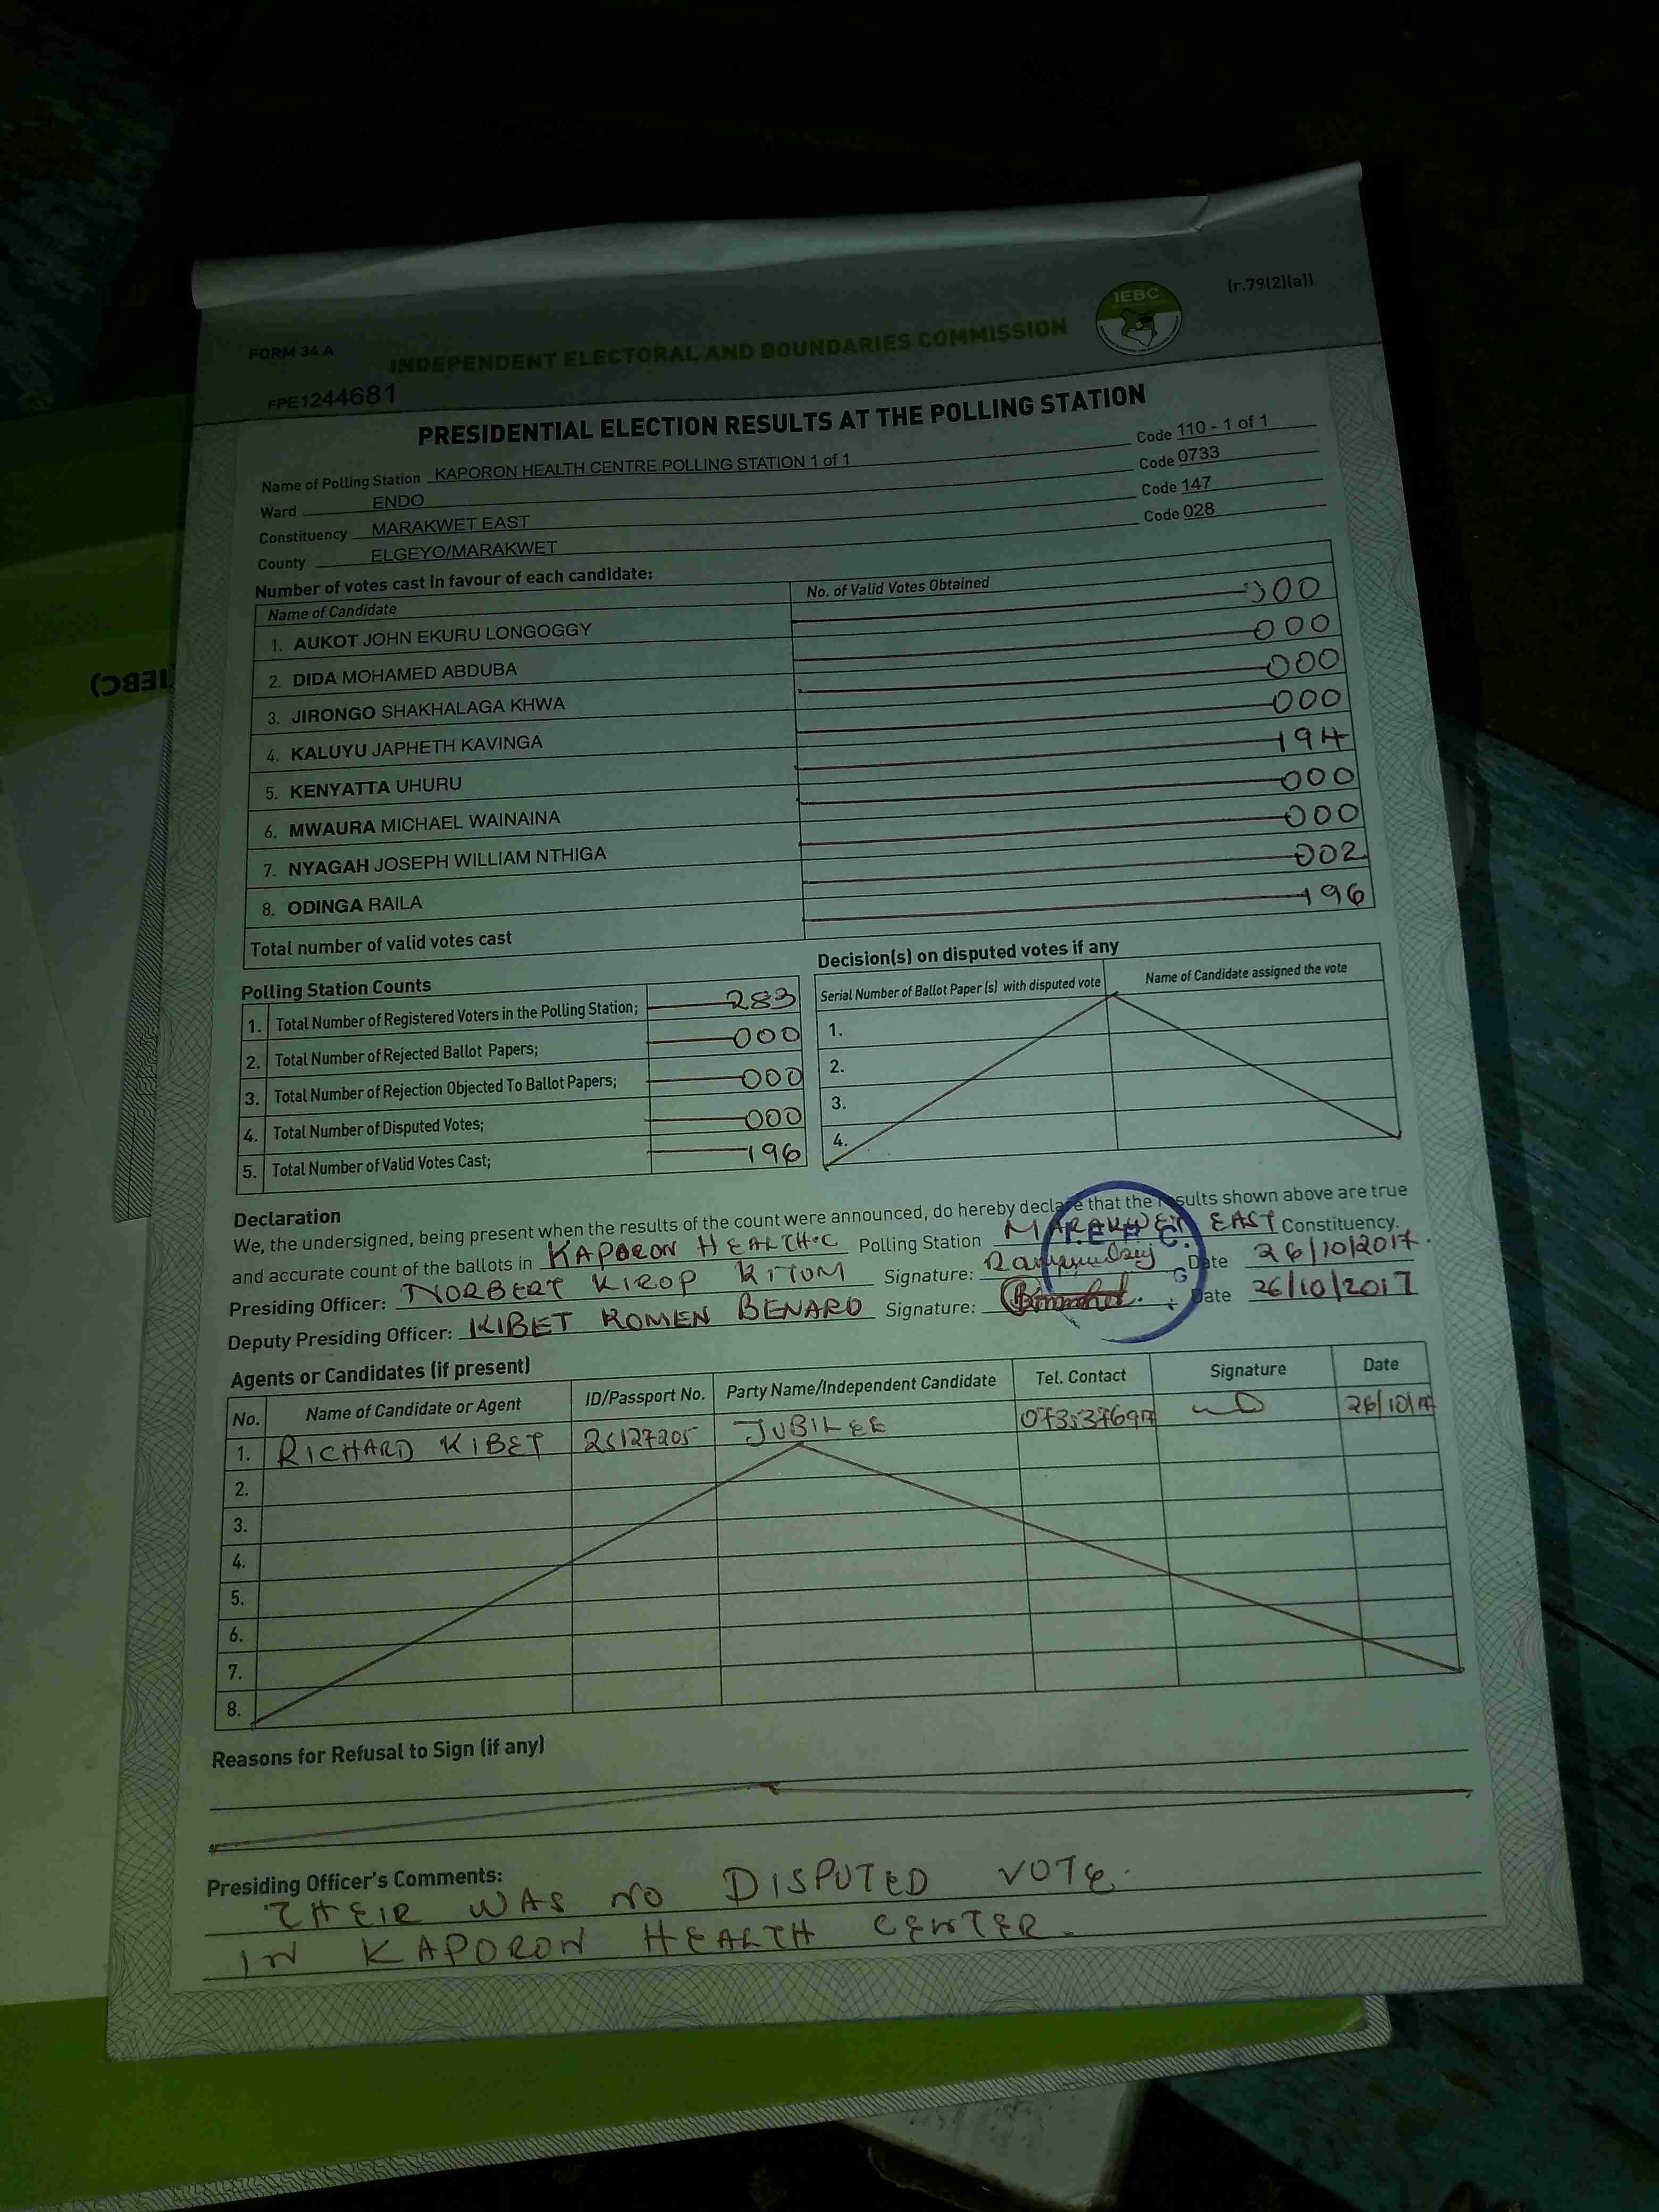 IEBC
(r.79(2)(a))
FORM 34 A
INDEPENDENT ELECTORAL AND BOUNDARIES COMMISSION
FPE1244681
PRESIDENTIAL ELECTION RESULTS AT THE POLLING STATION
Name of Polling Station KAPORON HEALTH CENTRE POLLING STATION 1 of 1 Code 110 - 1 of 1
Ward ENDO Code 0733
Constituency MARAKWET EAST Code 147
County ELGEYO/MARAKWET Code 028
Number of votes cast in favour of each candidate:
Name of Candidate No. of Valid Votes Obtained
1. AUKOT JOHN EKURU LONGOGGY 000
2. DIDA MOHAMED ABDUBA 000
3. JIRONGO SHAKHALAGA KHWA 000
4. KALUYU JAPHETH KAVINGA 000
5. KENYATTA UHURU 194
6. MWAURA MICHAEL WAINAINA 000
7. NYAGAH JOSEPH WILLIAM NTHIGA 000
8. ODINGA RAILA 002
Total number of valid votes cast 196
Polling Station Counts
1. Total Number of Registered Voters in the Polling Station; 283
2. Total Number of Rejected Ballot Papers; 000
3. Total Number of Rejection Objected To Ballot Papers; 000
4. Total Number of Disputed Votes; 000
5. Total Number of Valid Votes Cast; 196
Decision(s) on disputed votes if any
Serial Number of Ballot Paper (s) with disputed vote Name of Candidate assigned the vote
1.
2.
3.
4.
Declaration
We, the undersigned, being present when the results of the count were announced, do hereby declare that the results shown above are true
and accurate count of the ballots in KAPORON HEALTH C Polling Station MARAKWET EAST Constituency.
Presiding Officer: NORBERT KIROP KITUM Signature: Date 26/10/2017.
Deputy Presiding Officer: KIBET KOMEN BENARD Signature: Date 26/10/2017
Agents or Candidates (if present)
No. Name of Candidate or Agent ID/Passport No. Party Name/Independent Candidate Tel. Contact Signature Date
1. RICHARD KIBET JUBILEE 26/10/17
2.
3.
4.
5.
6.
7.
8.
Reasons for Refusal to Sign (if any)
Presiding Officer's Comments:
THEIR WAS NO DISPUTED VOTE.
IN KAPORON HEALTH CENTER.
IEBC)